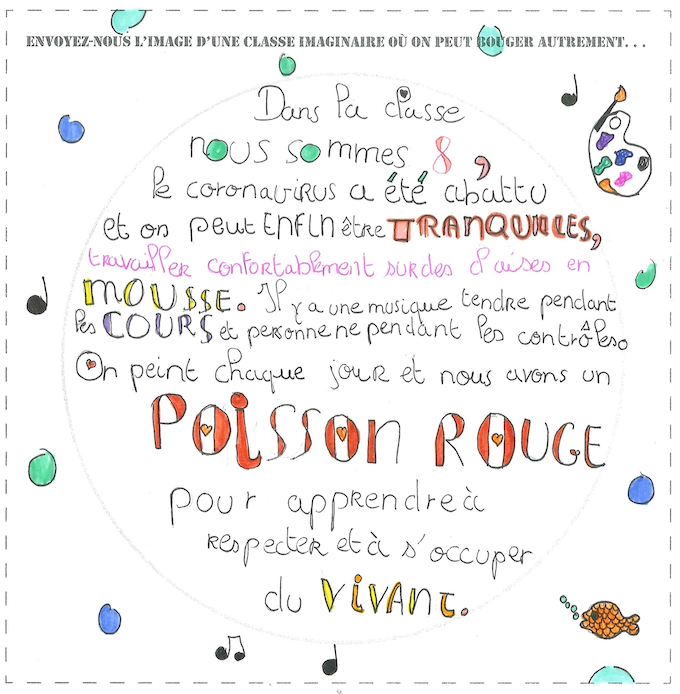 ENVOYEZ-NOUS L'IMAGE D'UNE CLASSE IMAGINAIRE OÙ ON PEUT BOUGER AUTREMENT...
Dans la classe
nous sommes 8,
le coronavirus a été abattu
et on peut ENFIN être TRANQUILLES,
travailler confortablement sur des chaises en
MOUSSE. Il y a une musique tendre pendant
les COURS et personne pendant les contrôles.
On peint chaque jour et nous avons un
POISSON ROUGE
pour apprendre à
respecter et à s'occuper
du VIVANT.